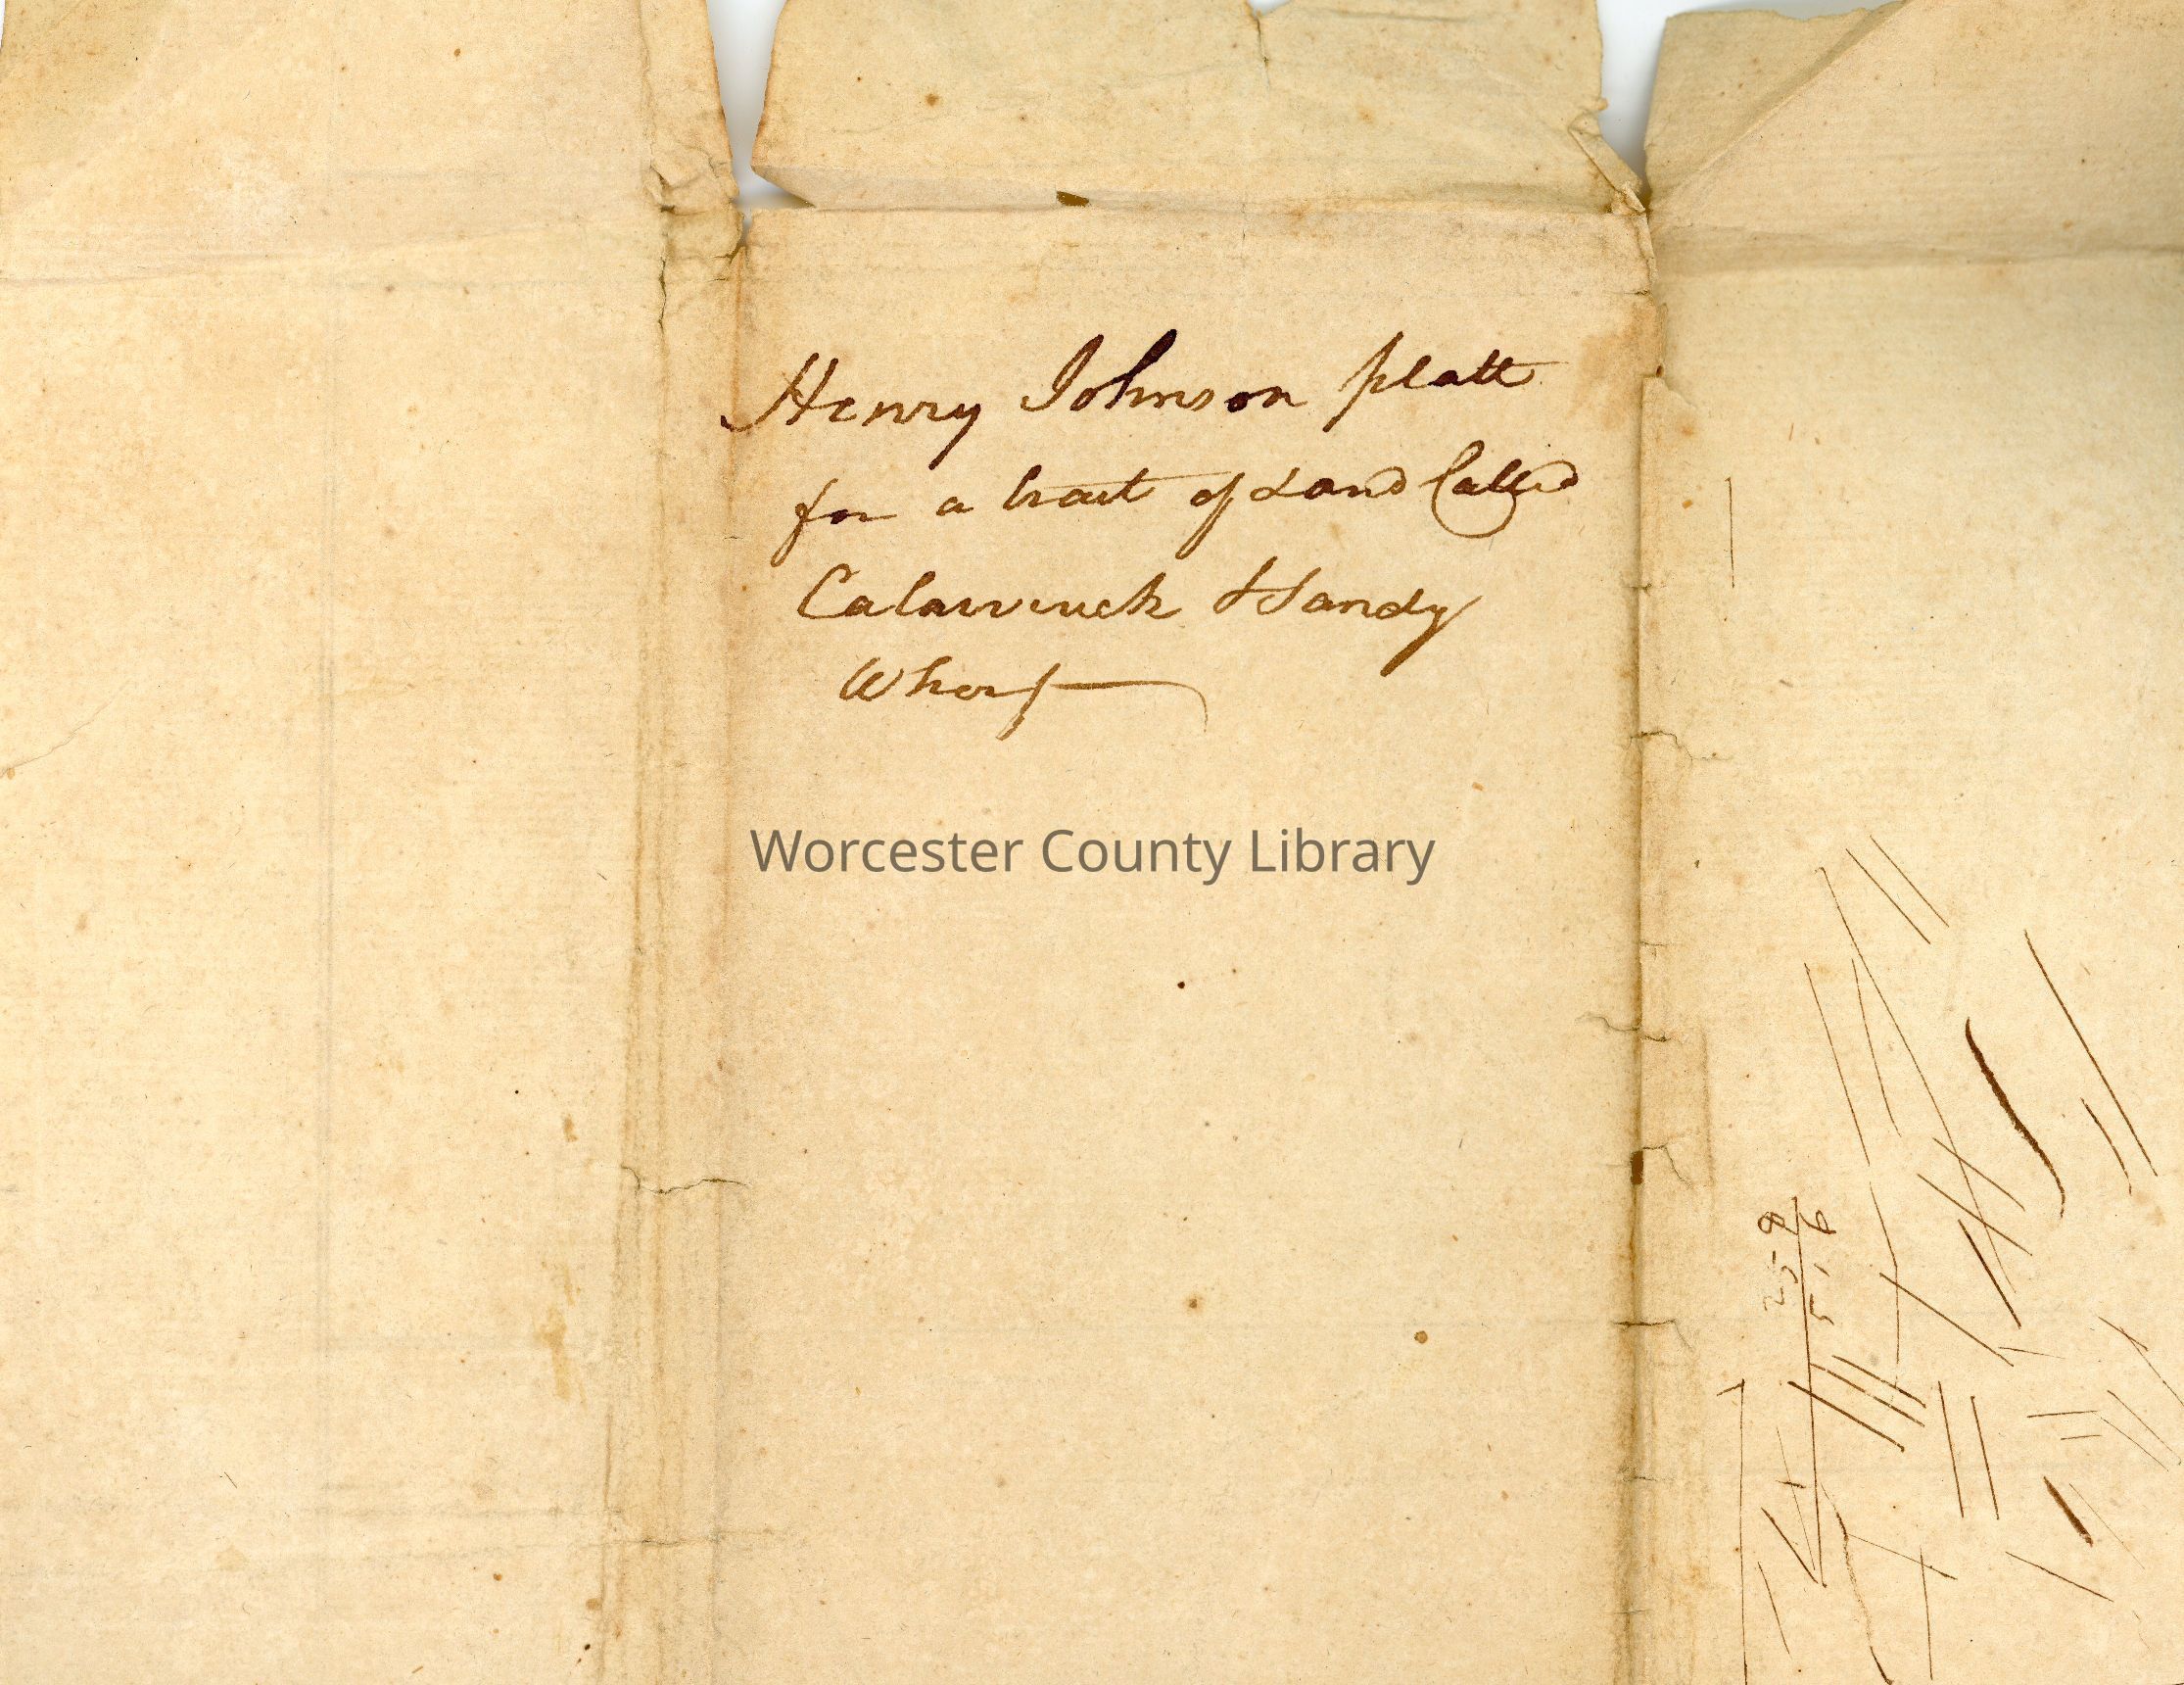 Henry Johnson platt
for a tract of Land Called
Calawuck Handy
Wharf
Worcester County Library
258
516